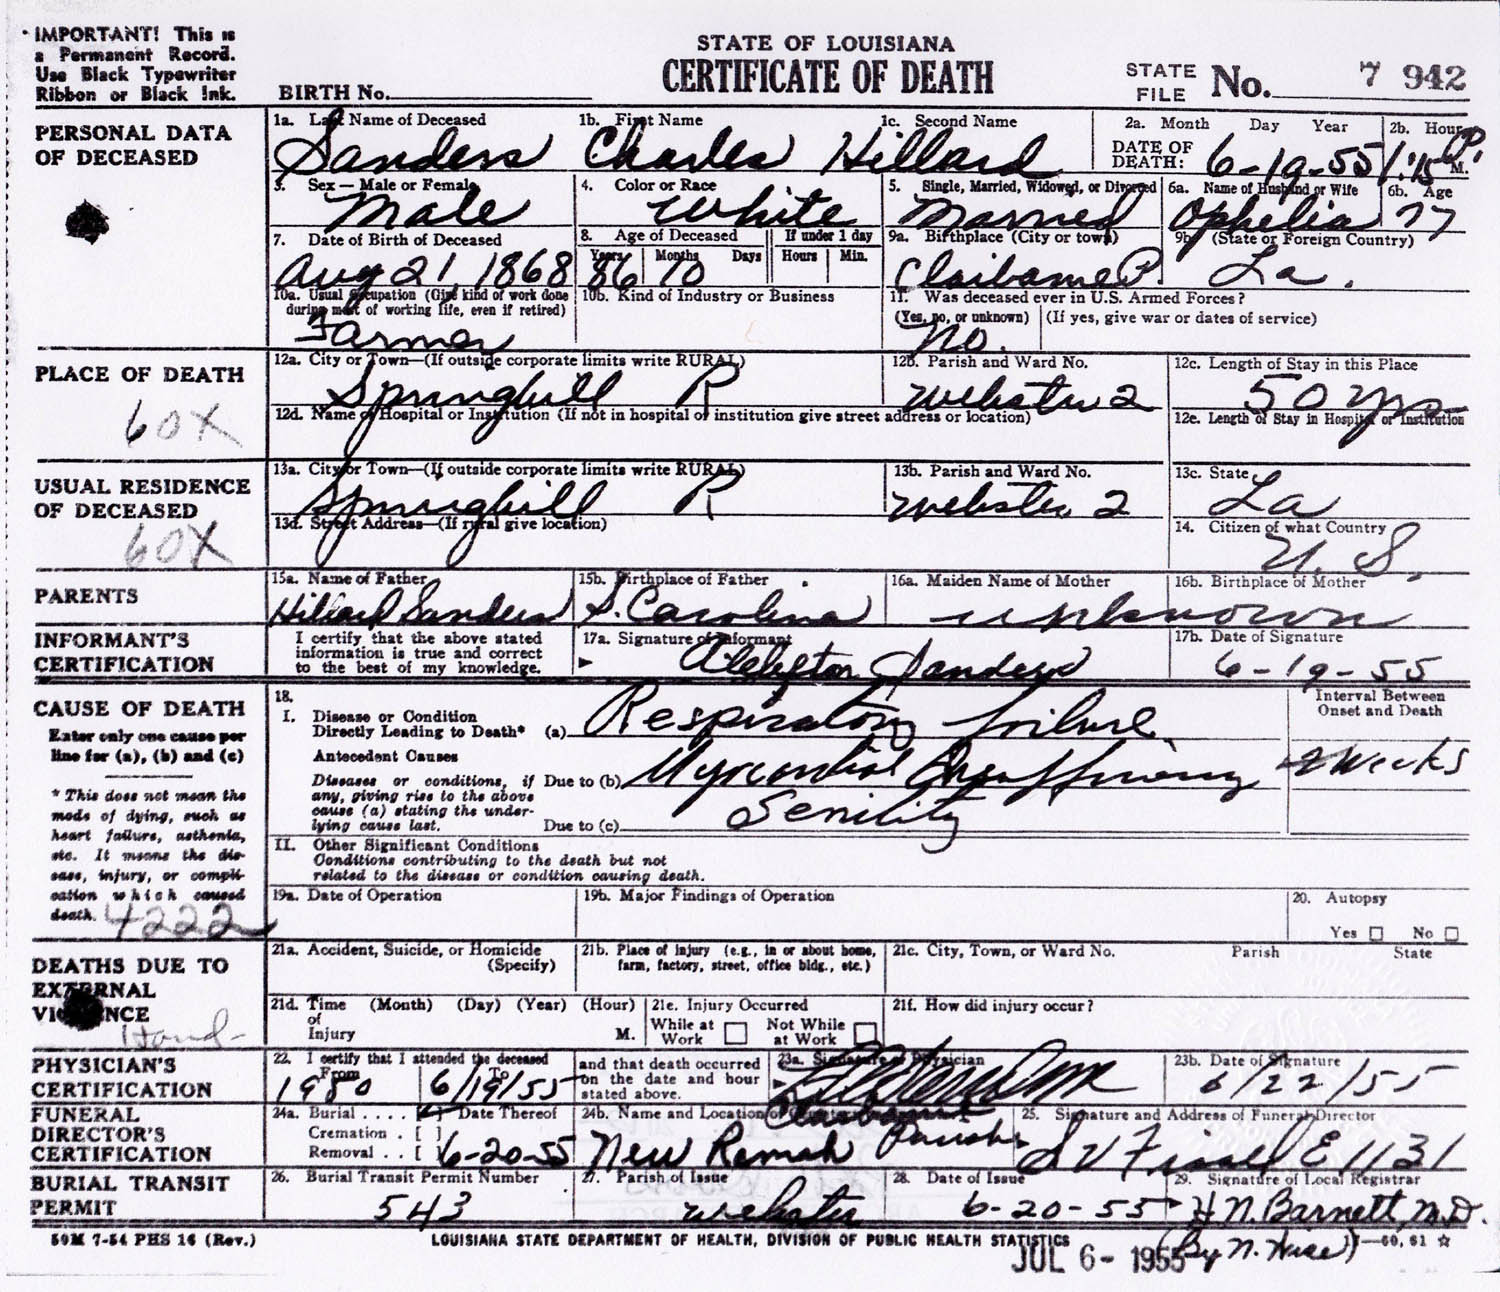 IMPORTANT! This is
a Permanent Record.
Use Black Typewriter
Ribbon or Black Ink.
STATE OF LOUISIANA
CERTIFICATE OF DEATH
BIRTH No.
STATE FILE No. 7 942
PERSONAL DATA
OF DECEASED
1a. Last Name of Deceased 1b. First Name 1c. Second Name
Sanders Charles Hillard
2a. Month Day Year 2b. Hour
DATE OF DEATH: 6-19-55 1:15 P. M.
3. Sex — Male or Female 4. Color or Race 5. Single, Married, Widowed, or Divorced 6a. Name of Husband or Wife 6b. Age
Male White Married Ophelia 77
7. Date of Birth of Deceased 8. Age of Deceased If under 1 day 9a. Birthplace (City or town) 9b. (State or Foreign Country)
Years Months Days Hours Min.
Aug 21, 1868 86 10 Claiborne P. La.
10a. Usual Occupation (Give kind of work done
during most of working life, even if retired)
10b. Kind of Industry or Business
11. Was deceased ever in U.S. Armed Forces?
(Yes, no, or unknown) (If yes, give war or dates of service)
Farmer No.
PLACE OF DEATH
60X
12a. City or Town—(If outside corporate limits write RURAL) 12b. Parish and Ward No. 12c. Length of Stay in this Place
Springhill R Webster 2 50 yrs
12d. Name of Hospital or Institution (If not in hospital or institution give street address or location) 12e. Length of Stay in Hospital or Institution
USUAL RESIDENCE
OF DECEASED
60X
13a. City or Town—(If outside corporate limits write RURAL) 13b. Parish and Ward No. 13c. State
Springhill R Webster 2 La
13d. Street Address—(If rural give location) 14. Citizen of what Country
U. S.
PARENTS
15a. Name of Father 15b. Birthplace of Father 16a. Maiden Name of Mother 16b. Birthplace of Mother
Hillard Sanders S. Carolina unknown
INFORMANT'S
CERTIFICATION
I certify that the above stated
information is true and correct
to the best of my knowledge.
17a. Signature of Informant 17b. Date of Signature
Sanders 6-19-55
CAUSE OF DEATH
Enter only one cause per
line for (a), (b) and (c)
* This does not mean the
mode of dying, such as
heart failure, asthenia,
etc. It means the dis-
ease, injury, or compli-
cation which caused
death.
4222
18.
I. Disease or Condition
Directly Leading to Death* (a) Respiratory failure
Interval Between
Onset and Death
Antecedent Causes
Diseases or conditions, if
any, giving rise to the above
cause (a) stating the under-
lying cause last.
Due to (b) Myocardial Insufficiency 2 Weeks
Due to (c) Senility
II. Other Significant Conditions
Conditions contributing to the death but not
related to the disease or condition causing death.
19a. Date of Operation 19b. Major Findings of Operation 20. Autopsy
Yes No
DEATHS DUE TO
EXTERNAL
VIOLENCE
21a. Accident, Suicide, or Homicide
(Specify)
21b. Place of injury (e.g., in or about home,
farm, factory, street, office bldg., etc.)
21c. City, Town, or Ward No. Parish State
21d. Time (Month) (Day) (Year) (Hour)
of
Injury M.
21e. Injury Occurred
While at Work Not While at Work
21f. How did injury occur?
PHYSICIAN'S
CERTIFICATION
22. I certify that I attended the deceased
From To
1950 6/19/55
and that death occurred
on the date and hour
stated above.
23a. Signature of Physician 23b. Date of Signature
6/22/55
FUNERAL
DIRECTOR'S
CERTIFICATION
24a. Burial .... Date Thereof
Cremation . [ ]
Removal .. [ ] 6-20-55
24b. Name and Location of
Claiborne Parish
New Ramah
25. Signature and Address of Funeral Director
E 1131
BURIAL TRANSIT
PERMIT
26. Burial Transit Permit Number 27. Parish of Issue 28. Date of Issue 29. Signature of Local Registrar
543 Webster 6-20-55 H N. Barnett, M.D.
50M 7-54 PHS 16 (Rev.)
LOUISIANA STATE DEPARTMENT OF HEALTH, DIVISION OF PUBLIC HEALTH STATISTICS
JUL 6- 1955